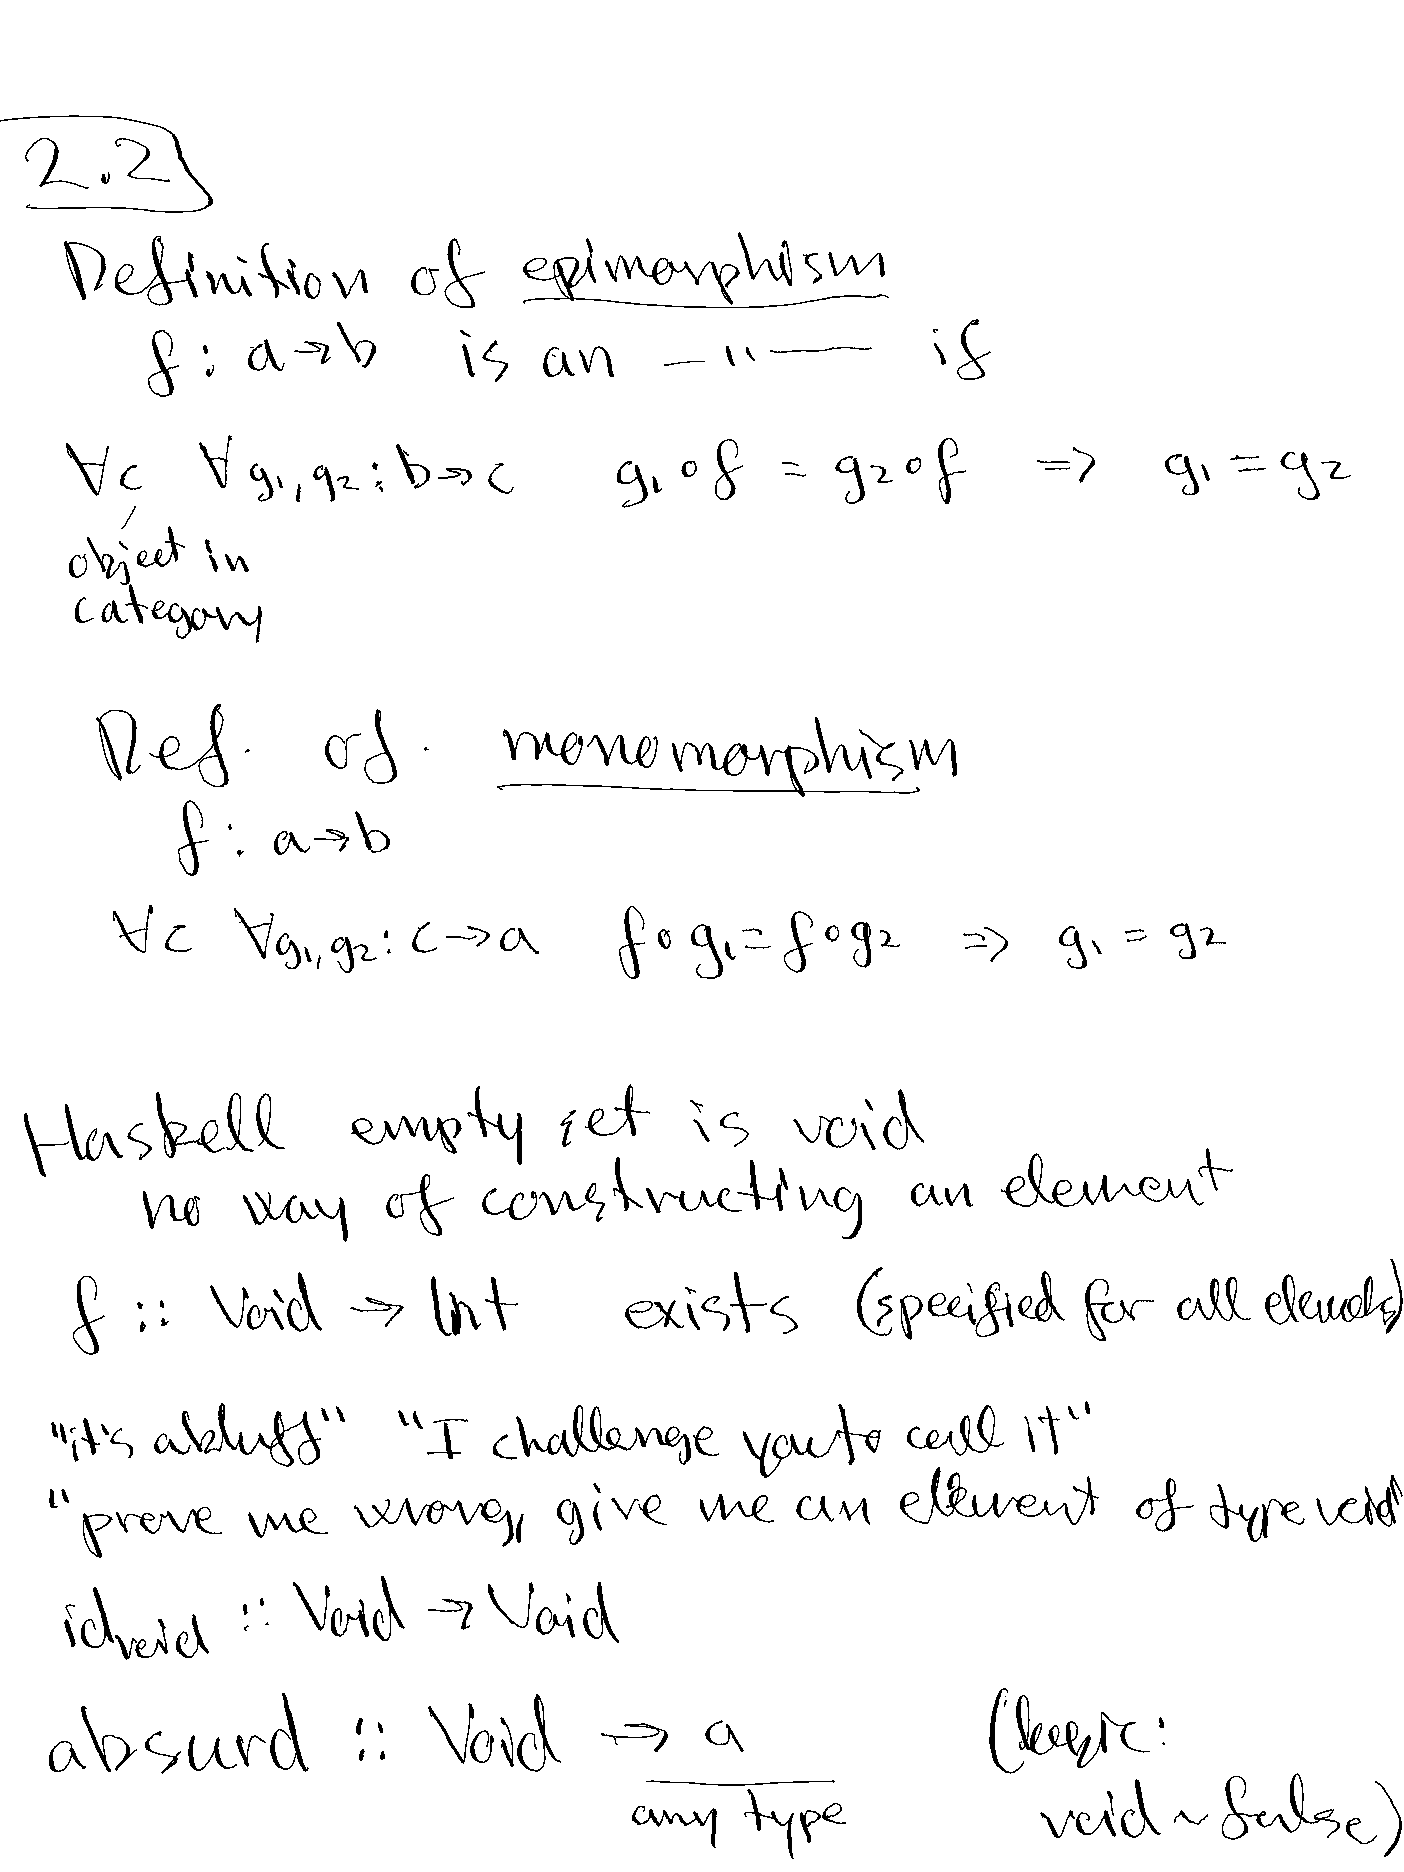 2.2
Definition of epimorphism
f : a → b is an —"— if
∀c ∀g₁,g₂ : b → c g₁∘f = g₂∘f ⇒ g₁ = g₂
object in
category
Def. of. monomorphism
f : a → b
∀c ∀g₁,g₂ : c → a f∘g₁ = f∘g₂ ⇒ g₁ = g₂
Haskell empty set is void
no way of constructing an element
f :: Void → Int exists (specified for all elements)
"it's a bluff" "I challenge you to call it"
"prove me wrong, give me an element of type void"
id_void :: Void → Void
absurd :: Void → a (logic:
any type void ~ false)